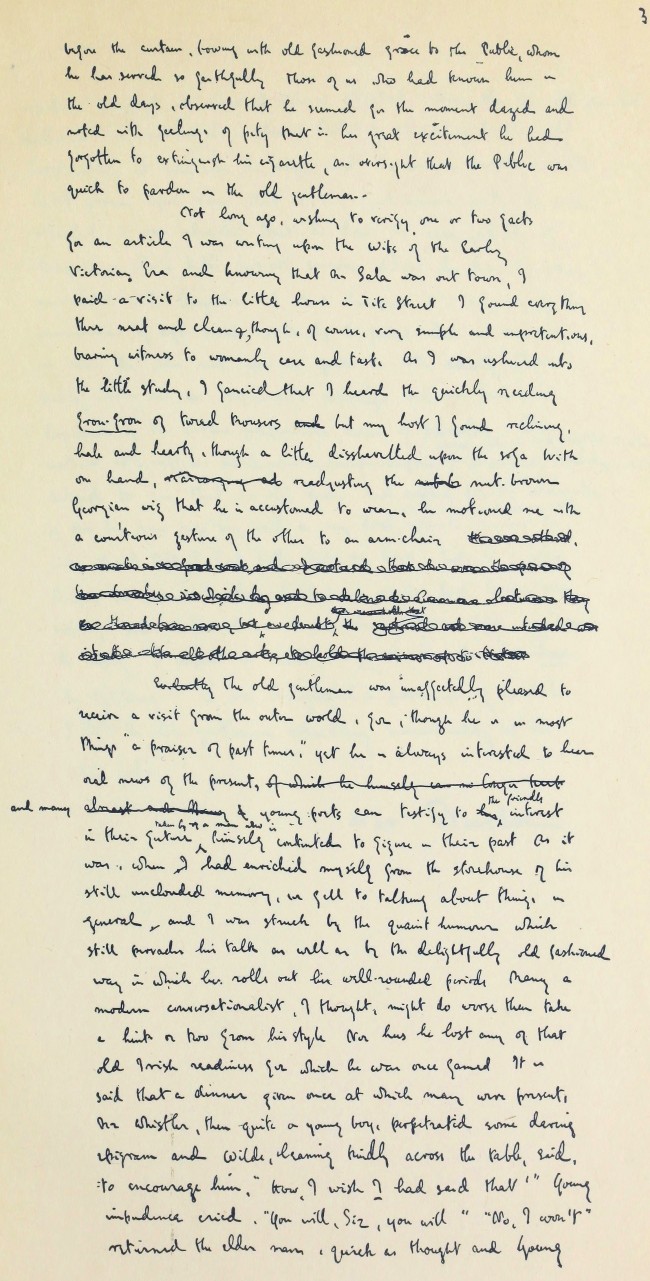 3
before the curtain, bowing with old fashioned grace to the Public, whom
he has served so faithfully Those of us who had known him in
the old days, observed that he seemed for the moment dazed and
noted with feelings of pity that in his great excitement he had
forgotten to extinguish his cigarette, an oversight that the Public was
quick to pardon in the old gentleman..
Not long ago, wishing to verify one or two facts
for an article I was writing upon the Wits of the Early
Victorian Era and knowing that Mr Sala was out town, I
paid a visit to the little house in Tite Street I found everything
there neat and clean, though, of course, very simple and unpretentious,
bearing witness to womanly care and taste. As I was ushered into
the little study, I fancied that I heard the quickly receding
frou-frou of tweed trousers and but my host I found reclining,
hale and hearty, though a little dissheveled upon the sofa With
one hand, readjusting the nut-brown
Georgian wig that he is accustomed to wear, he motioned me with
a courteous gesture of the other to an arm-chair
the old gentleman was unaffectedly pleased to
receive a visit from the outer world, for, though he is in most
things "a praiser of past times," yet he is always interested to hear
oral news of the present, of which he himself can no longer
and many almost and many young poets can testify to the friendly interest
in their future himself contented to figure in their past As it
was, when I had enriched myself from the storehouse of his
still unclouded memory, we fell to talking about things in
general, and I was struck by the quaint humour which
still pervades his talk as well as by the delightfully old fashioned
way in which he rolls out his well-rounded periods Many a
modern conversationalist, I thought, might do worse than take
a hint or two from his style Nor has he lost any of that
old Irish readiness for which he was once famed It is
said that a dinner given once at which many were present,
Mr Whistler, then quite a young boy, perpetrated some daring
epigram and Wilde, leaning kindly across the table, said,
to encourage him, "How, I wish I had said that '" Young
impudence cried. "You will, Sir, you will" "No, I won't"
returned the elder man, quick as thought and Young